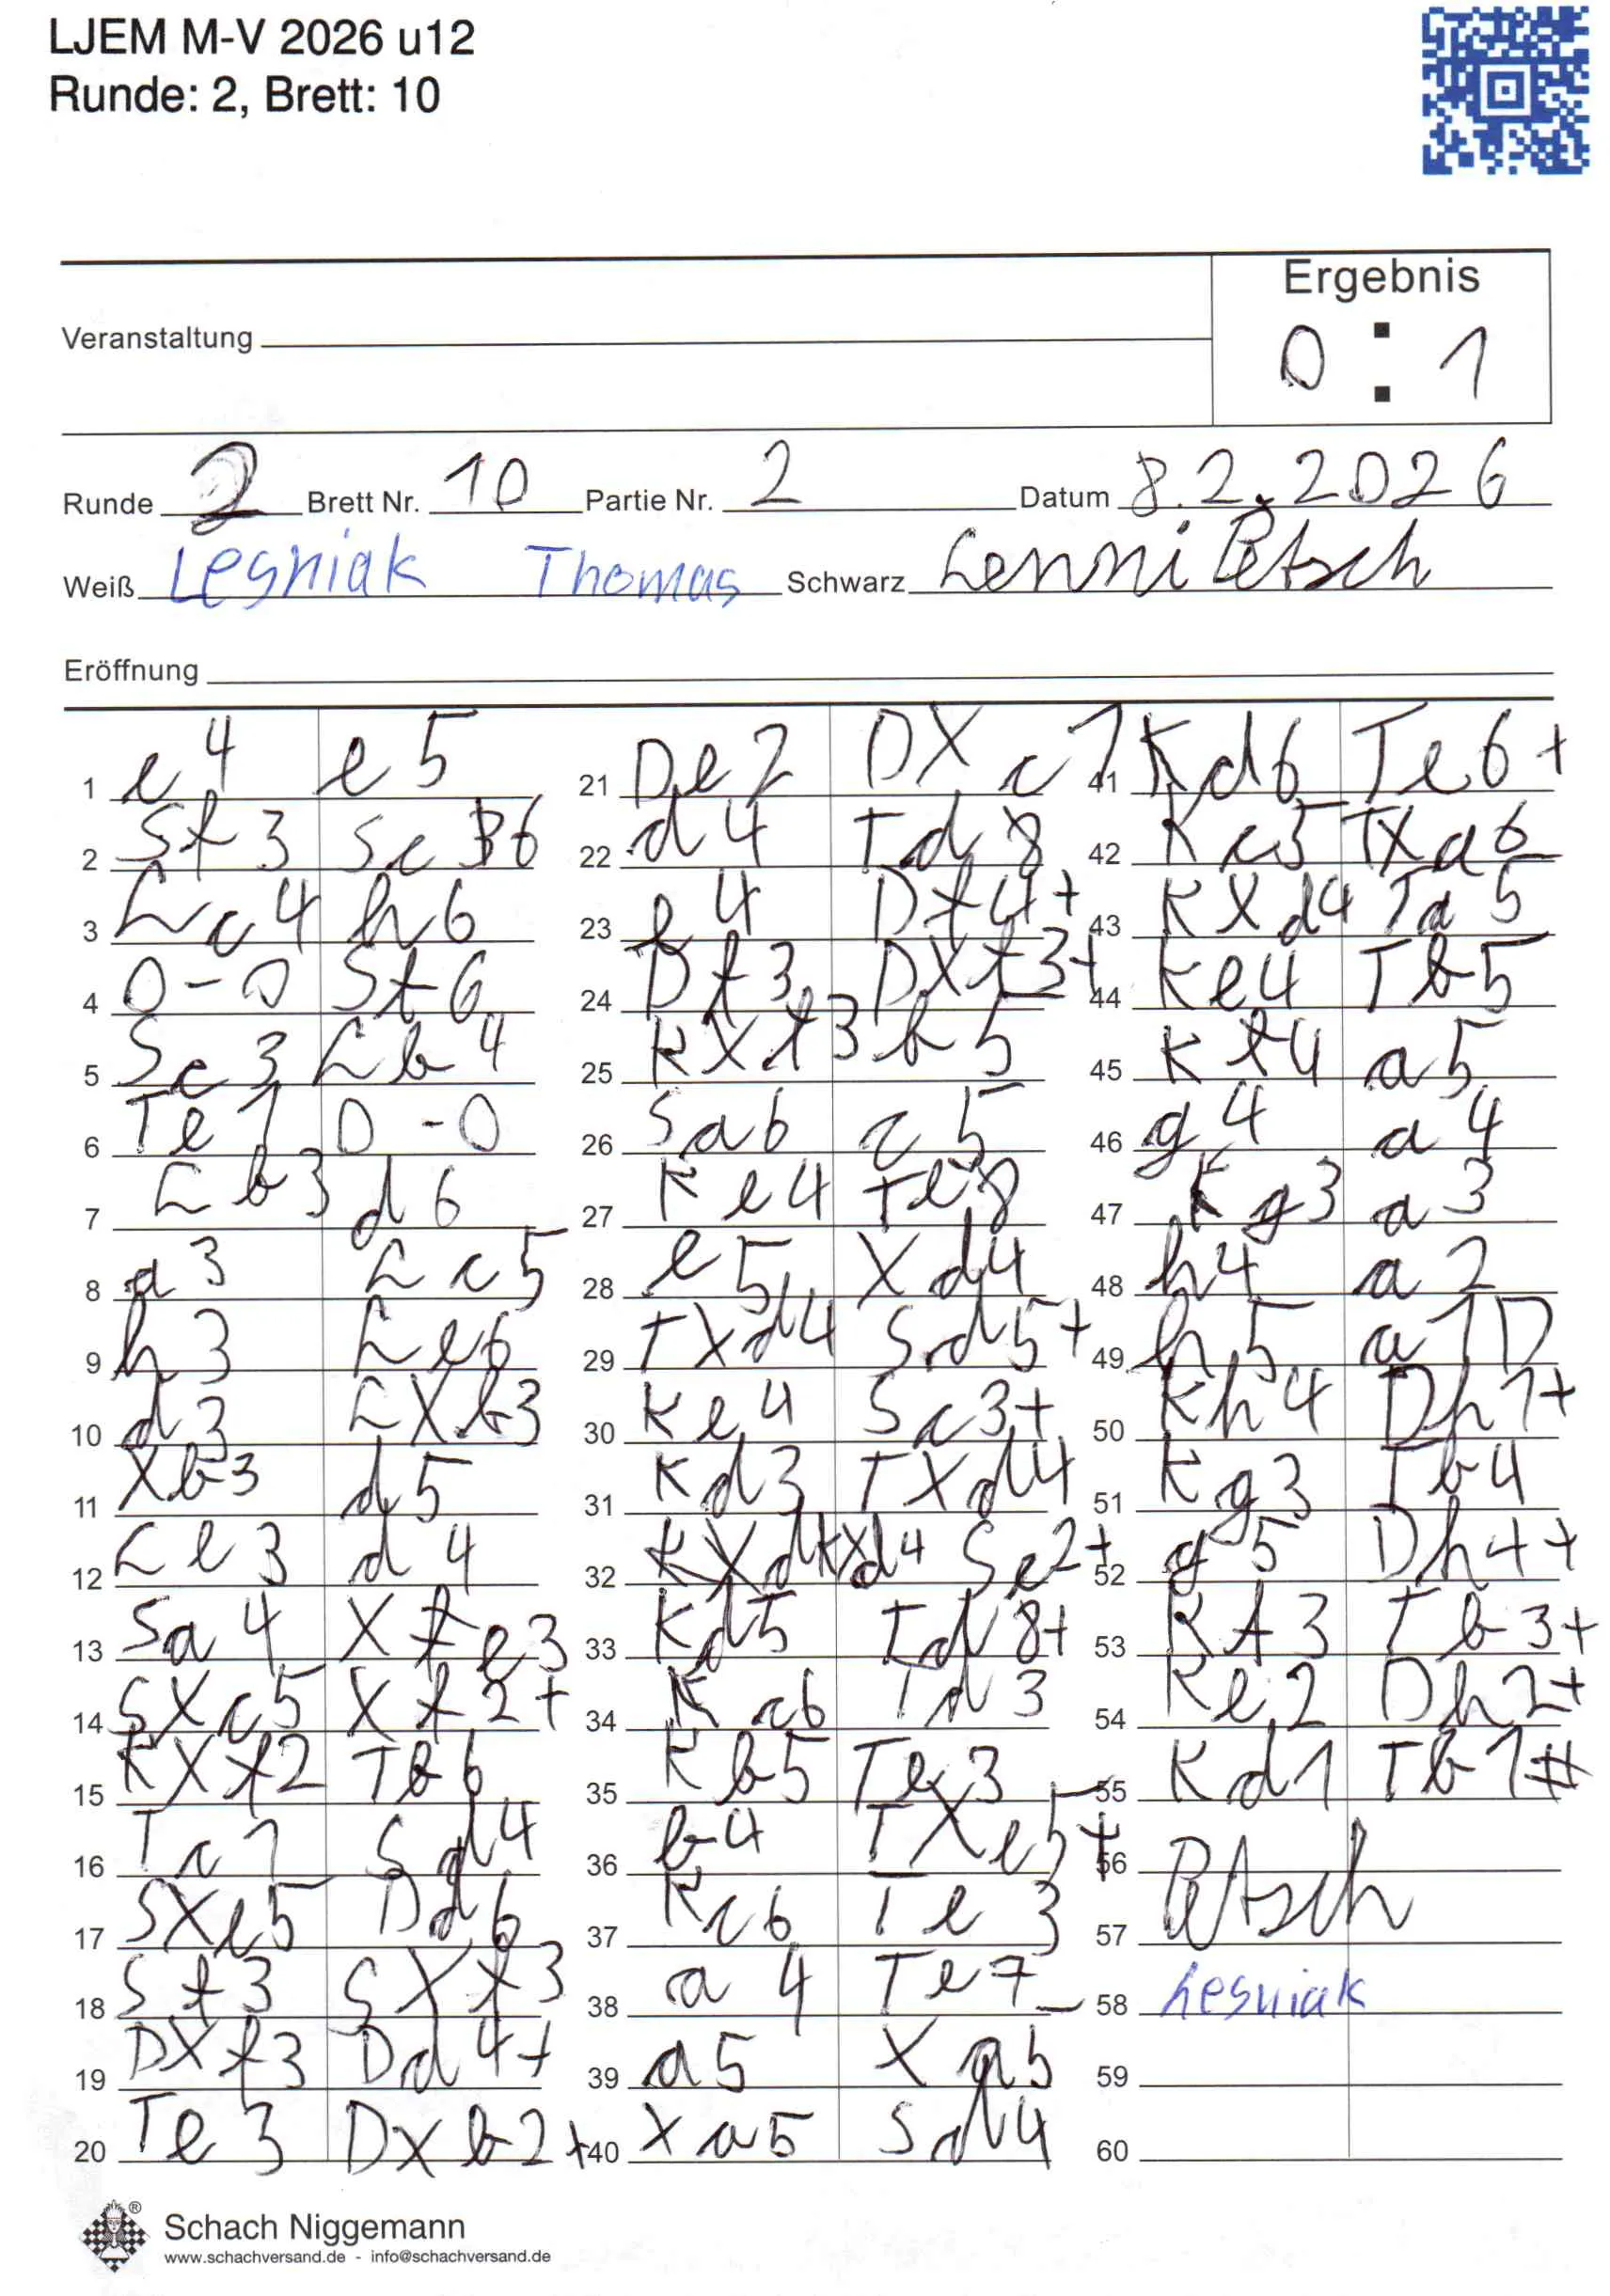 LJEM M-V 2026 u12
Runde: 2, Brett: 10
Ergebnis
0 : 1
Veranstaltung
Runde 2 Brett Nr. 10 Partie Nr. 2 Datum 8.2.2026
Weiß Lesniak Thomas Schwarz Lenni Petsch
Eröffnung
1 e4 e5
2 Sf3 Sc6
3 Lc4 h6
4 0-0 Sf6
5 Sc3 Lb4
6 Te1 0-0
7 Lb3 d6
8 a3 Lc5
9 h3 Le6
10 d3 LXb3
11 Xb3 d5
12 Le3 d4
13 Sa4 Xe3
14 SXc5 Xf2+
15 KXf2 Tb6
16 Tc1 Sd4
17 SXe5 Dd6
18 Sf3 SXf3
19 DXf3 Dd4+
20 Te3 DXb2+
21 De2 DXc1
22 d4 Td8
23 e4 Df4+
24 Df3 DXf3+
25 KXf3 b5
26 Sa6 c5
27 Ke4 Te8
28 e5 Xd4
29 TXd4 Sd5+
30 Ke4 Sc3+
31 Kd3 TXd4
32 KXd4 Se2+
33 Kd5 Td8+
34 Kc6 Td3
35 Kb5 Te3
36 b4 TXe5+
37 Kc6 Te3
38 a4 Te7
39 a5 Xa5
40 Xa5 Sd4
41 Kd6 Te6+
42 Kc5 TXa6
43 KXd4 Ta5
44 Ke4 Tb5
45 Kf4 a5
46 g4 a4
47 Kg3 a3
48 h4 a2
49 h5 a1D
50 Kh4 Dh1+
51 Kg3 Tb4
52 g5 Dh4+
53 Kf3 Tb3+
54 Ke2 Dh2+
55 Kd1 Tb1#
56
57 Petsch
58 Lesniak
59
60
Schach Niggemann
www.schachversand.de - info@schachversand.de